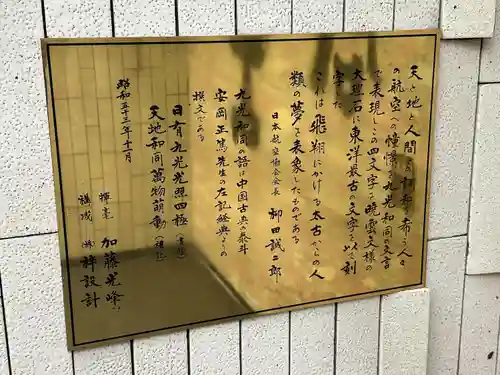 天と地と人間の調和を希う人々
の航空への憧憬を九光和同の文言
で表現しこの四文字を暁雲文様の
大理石に東洋最古の文字を以て刻
字した
これは飛翔にかける太古からの人
類の夢を表象したものである
日本航空協会会長 柳田誠二郎
九光和同の語は中国古典の泰斗
安岡正篤先生の左記経典よりの
撰文である
日有九光光照四極
天地和同萬物萌動
昭和五十三年十一月
揮毫 加藤光峰
構成 ㈱梓設計